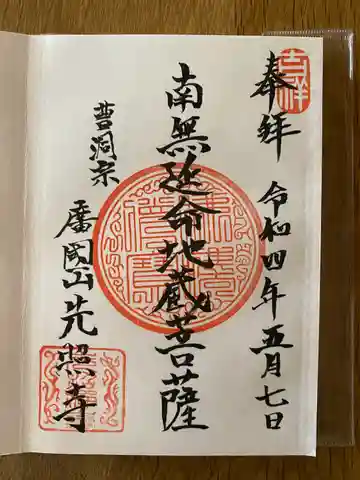 吉祥
奉拜 令和四年五月七日
南無延命地蔵菩薩
曹洞宗
國山先照寺